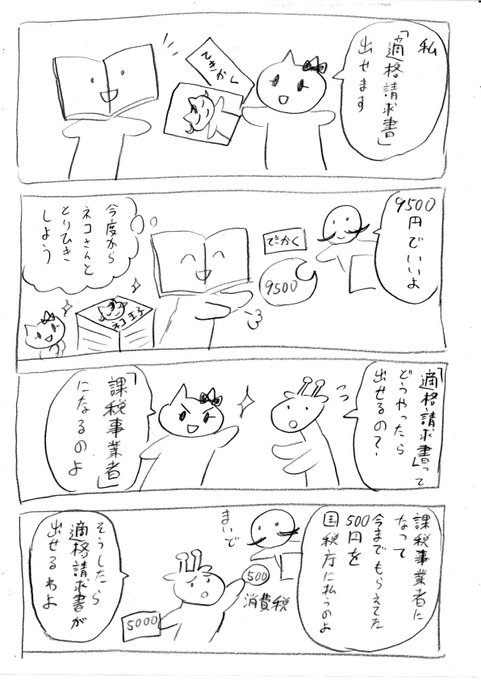 私
「適格請求書」
出せます
てきかく
9500
円でいいよ
てきかく
9500
今度から
ネコさんと
とりひき
しよう
ネコ王子
「適格請求書」って
どうやったら
出せるの?
「課税事業者」
になるのよ
課税事業者に
なって
今までもらえてた
500円を
国税庁に払うのよ
まいど
500
消費税
5000
そうしたら
適格請求書が
出せるわよ